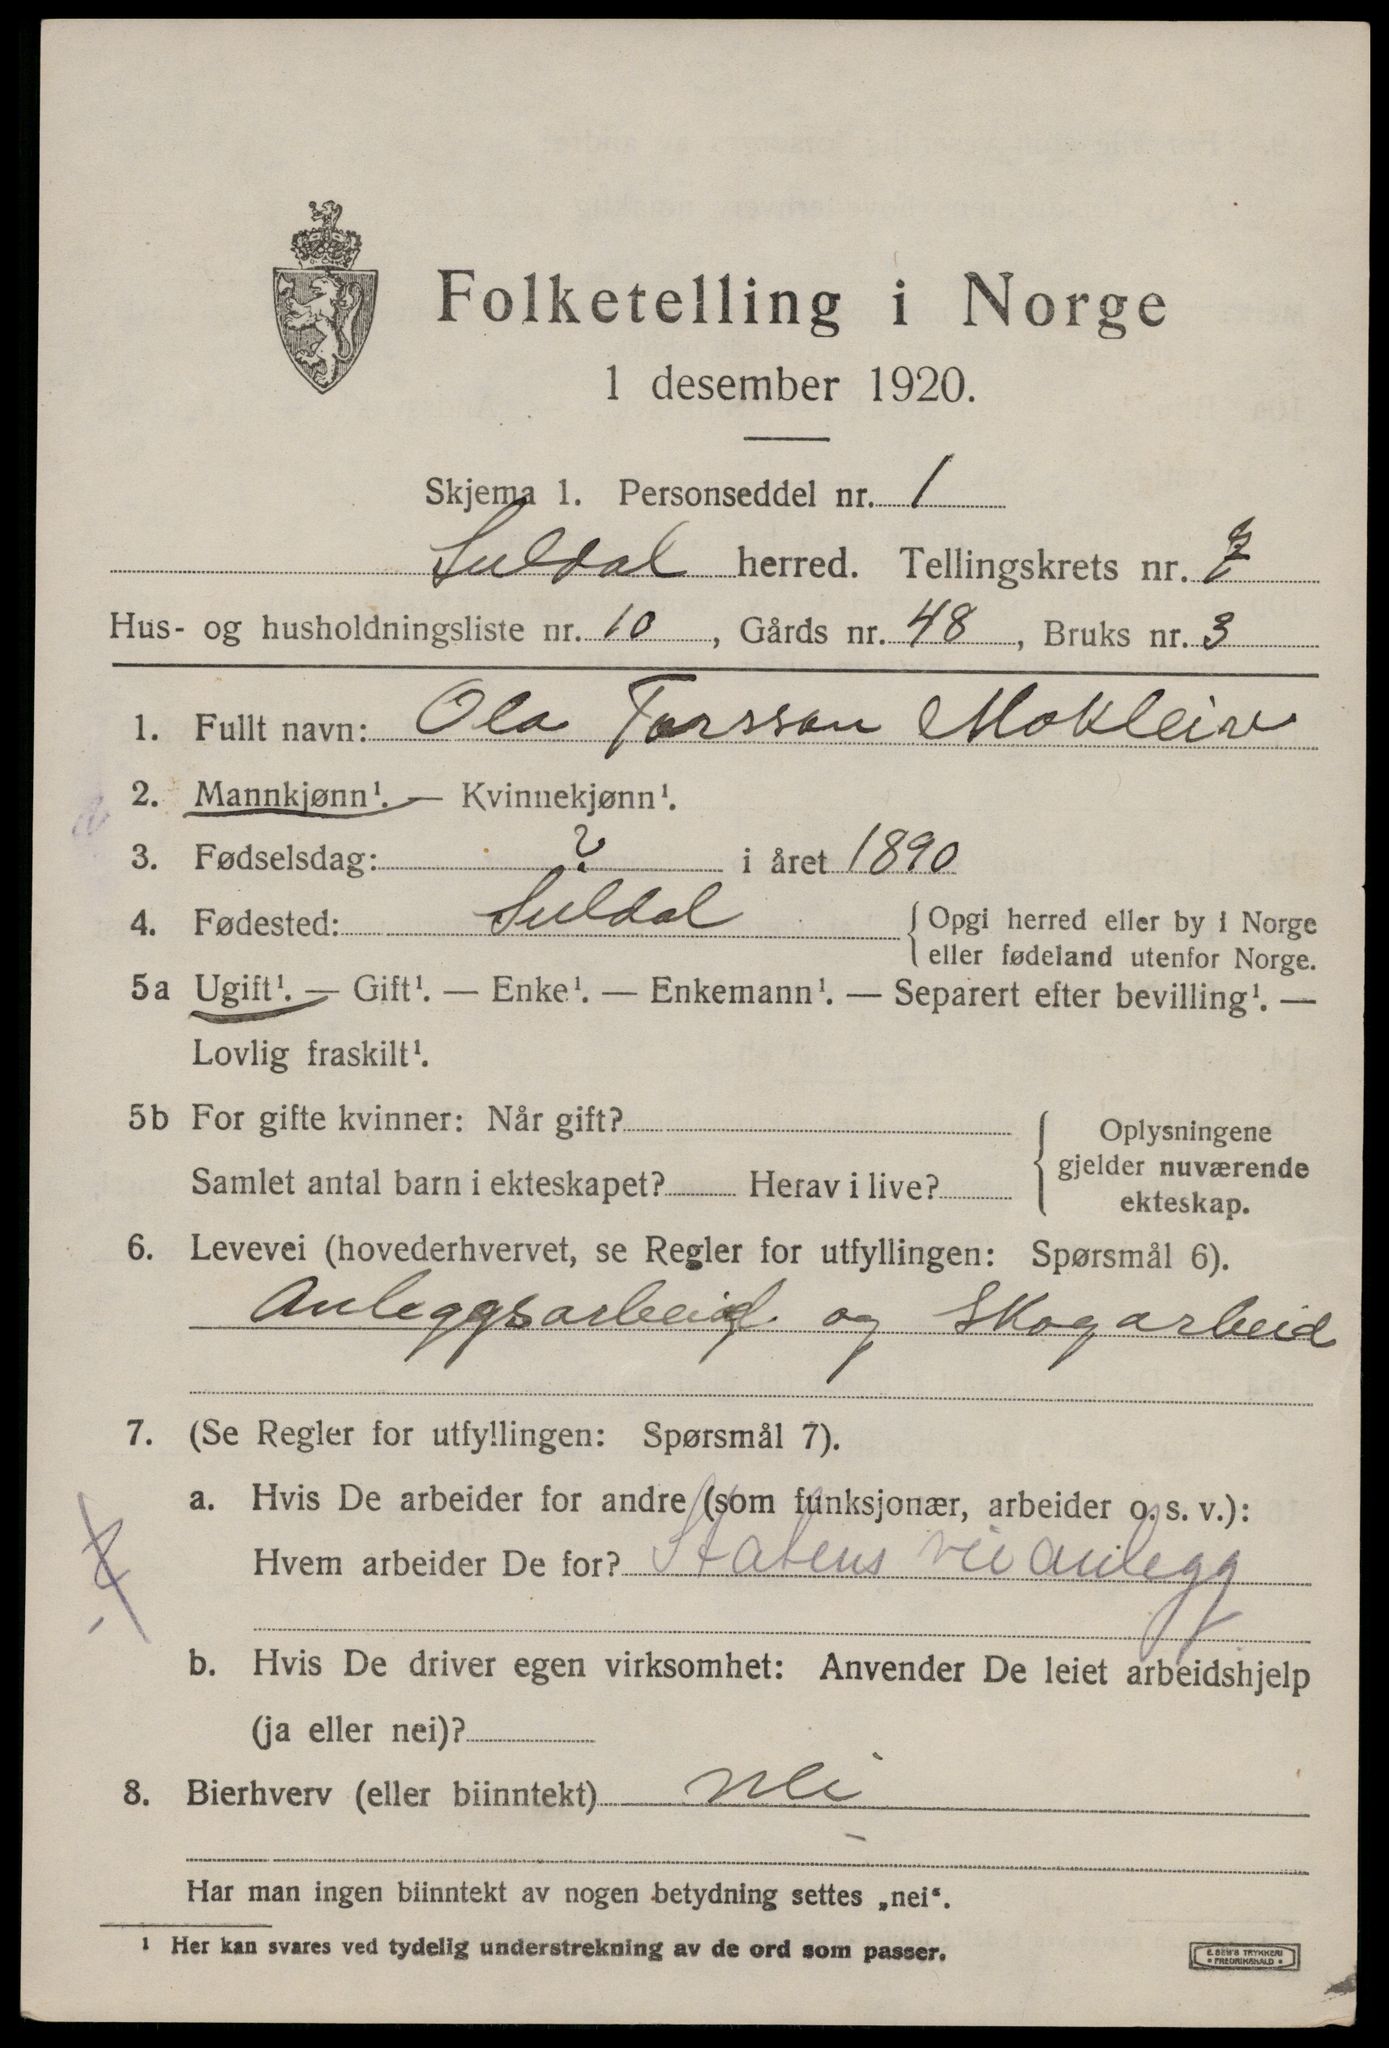 Folketelling i Norge
1 desember 1920.
Skjema 1. Personseddel nr. 1
Suldal herred. Tellingskrets nr. 7
Hus- og husholdningsliste nr. 10, Gårds nr. 48, Bruks nr. 3
1. Fullt navn: Ola Torsson Mokleiv
2. Mannkjønn¹. — Kvinnekjønn¹.
3. Fødselsdag: ? i året 1890
4. Fødested: Suldal { Opgi herred eller by i Norge
eller fødeland utenfor Norge.
5a Ugift¹. — Gift¹. — Enke¹. — Enkemann¹. — Separert efter bevilling¹. —
Lovlig fraskilt¹.
5b For gifte kvinner: Når gift?
Samlet antal barn i ekteskapet? Herav i live?
{ Oplysningene
gjelder nuværende
ekteskap.
6. Levevei (hovederhvervet, se Regler for utfyllingen: Spørsmål 6).
Anleggsarbeid og Skogarbeid
7. (Se Regler for utfyllingen: Spørsmål 7).
a. Hvis De arbeider for andre (som funksjonær, arbeider o. s. v.):
Hvem arbeider De for? Statens veianlegg
b. Hvis De driver egen virksomhet: Anvender De leiet arbeidshjelp
(ja eller nei)?
8. Bierhverv (eller biinntekt) nei
Har man ingen biinntekt av nogen betydning settes „nei“.
¹ Her kan svares ved tydelig understrekning av de ord som passer.
E. SEM'S TRYKKERI
• FREDRIKSHALD •